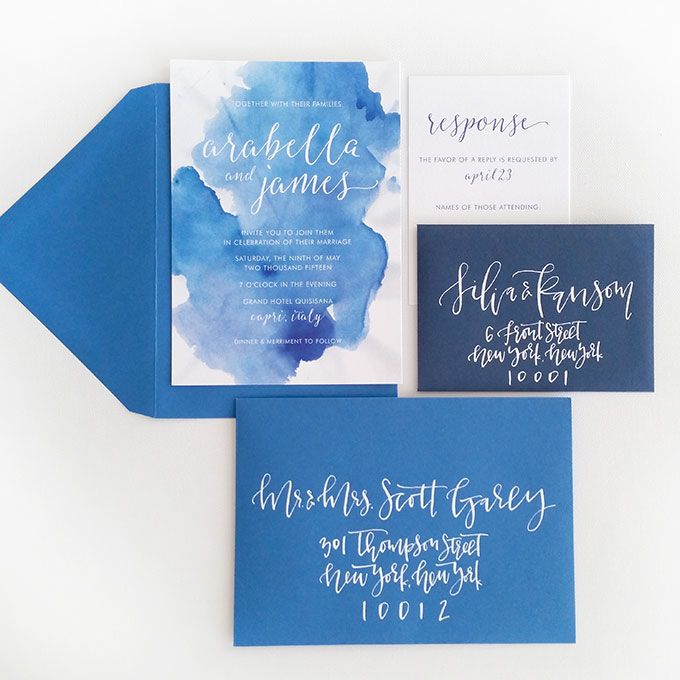 TOGETHER WITH THEIR FAMILIES
arabella
and james
INVITE YOU TO JOIN THEM
IN CELEBRATION OF THEIR MARRIAGE
SATURDAY, THE NINTH OF MAY
TWO THOUSAND FIFTEEN
7 O'CLOCK IN THE EVENING
GRAND HOTEL QUISISANA
capri, italy
DINNER & MERRIMENT TO FOLLOW
response
THE FAVOR OF A REPLY IS REQUESTED BY
april 23
NAMES OF THOSE ATTENDING
Silvia & Ransom
6 Front Street
New York, New York
10001
Mr. & Mrs. Scott Garey
301 Thompson Street
New York, New York
10012